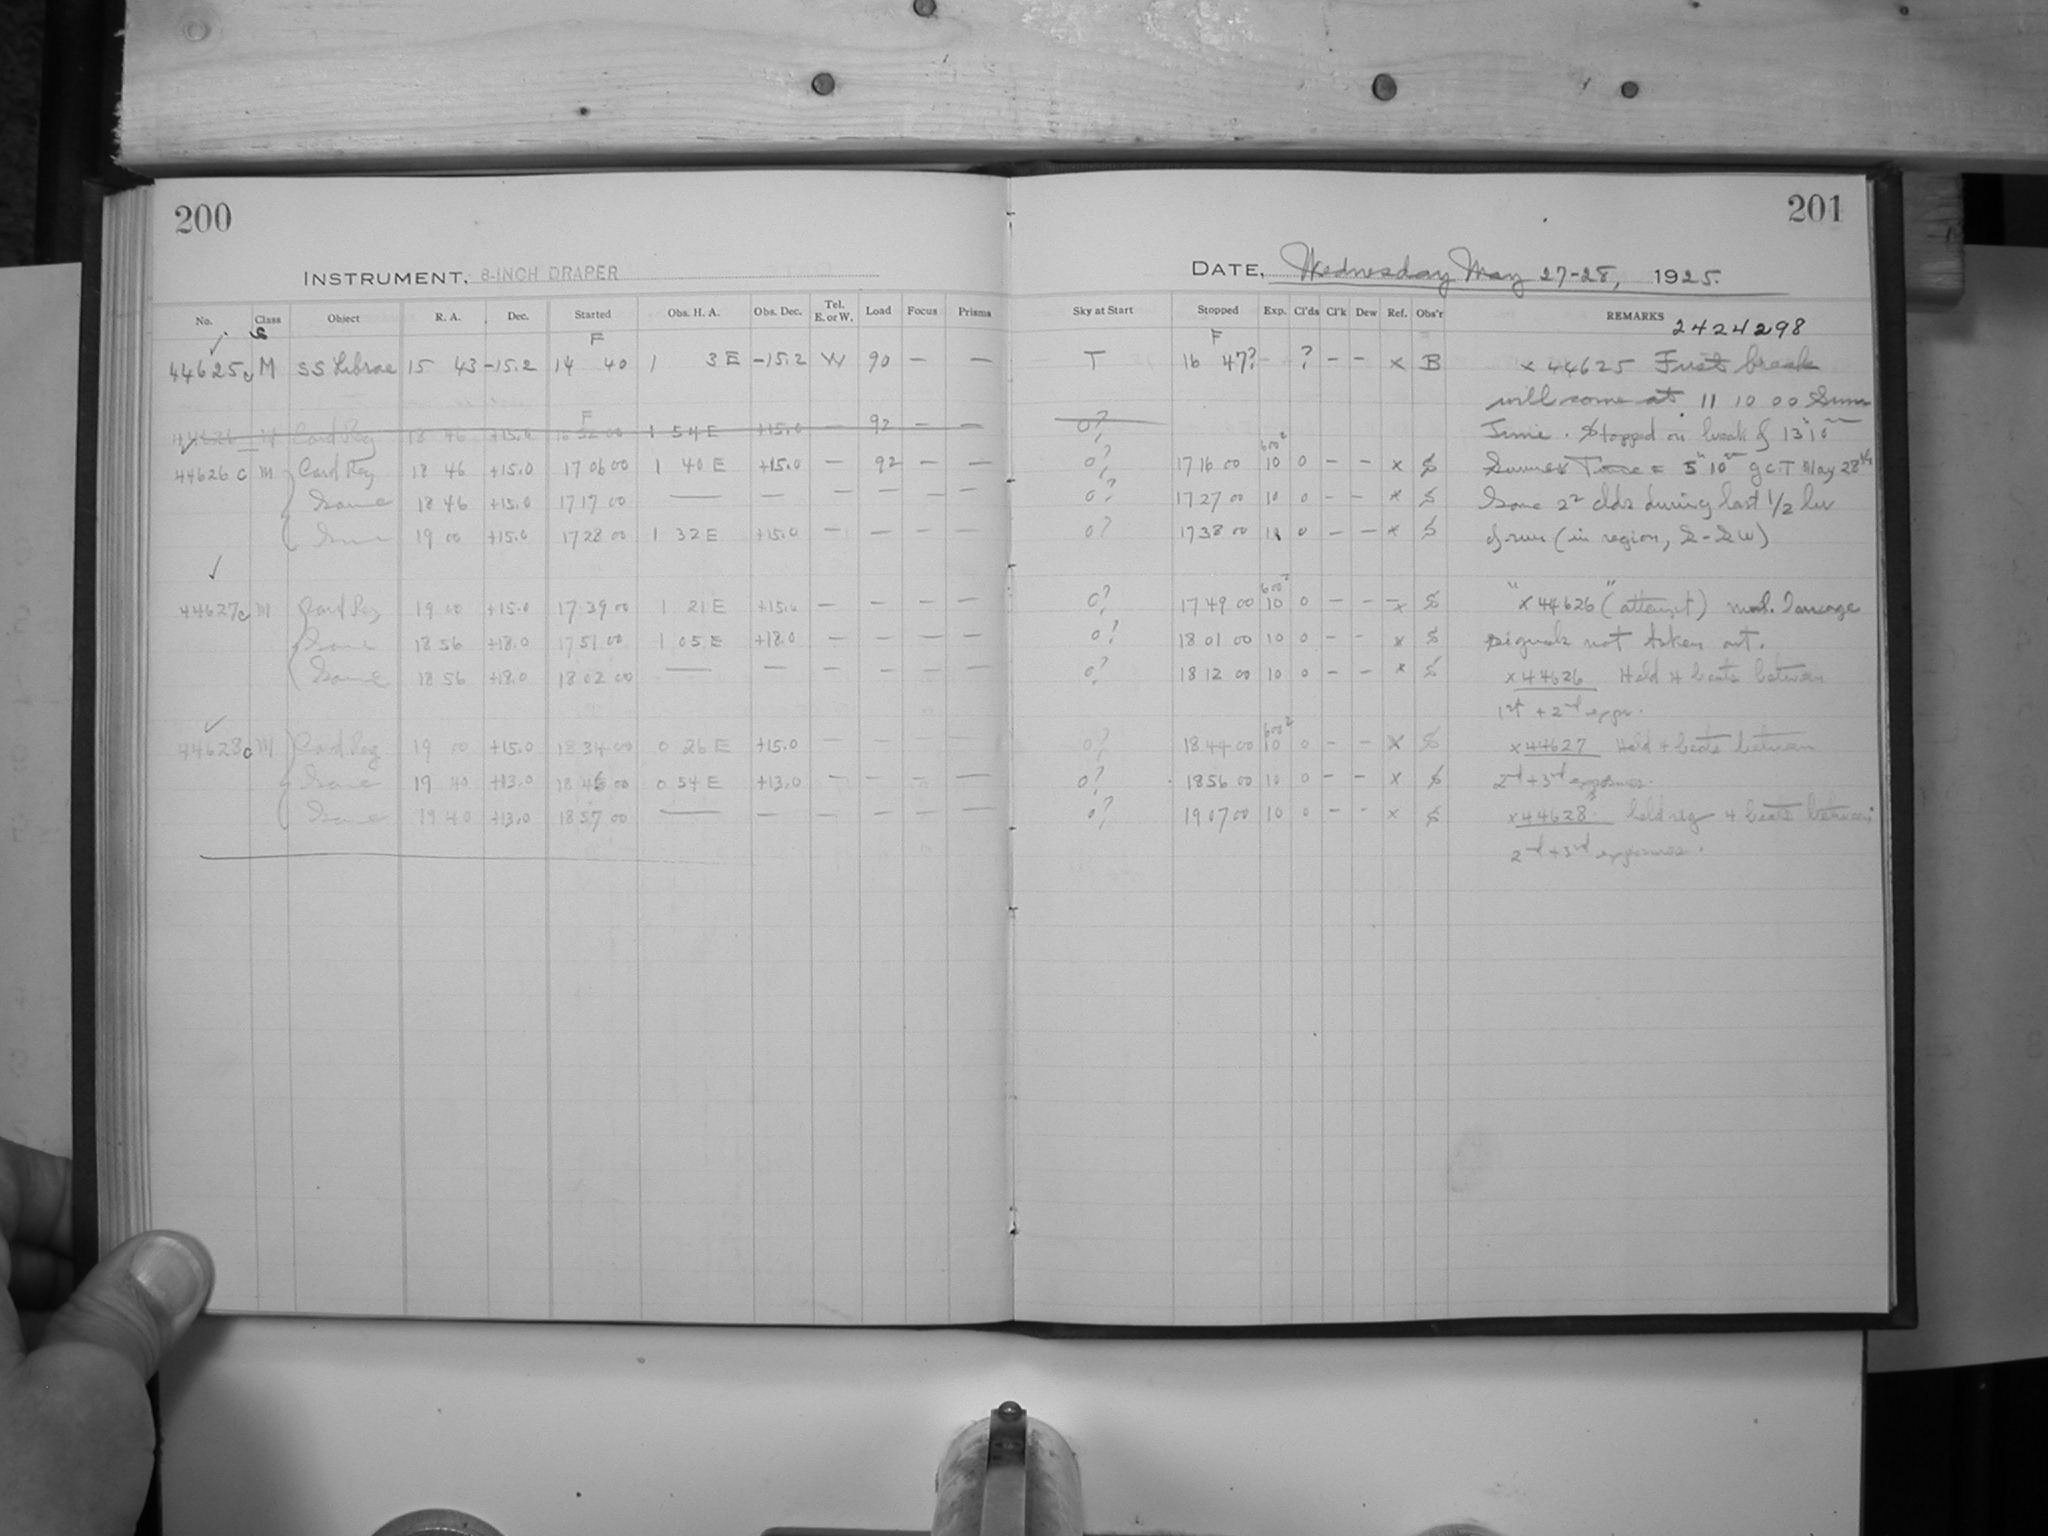 200
INSTRUMENT, 8-INCH DRAPER
No. Class Object R. A. Dec. Started Obs. H. A. Obs. Dec. Tel. E. or W. Load Focus Prisms
F
44625 M SS Librae 15 43 -15.2 14 40 1 3 E -15.2 W 90 — —
F
1 54 E +15.0 — 92 — —
44626 c M Card Reg 18 46 +15.0 17 06 00 1 40 E +15.0 — 92 — —
Same 18 46 +15.0 17 17 00 — — — — — —
Same 19 00 +15.0 17 28 00 1 32 E +15.0 — — — —
44627 c M Card Reg 19 00 +15.0 17 39 00 1 21 E +15.0 — — — —
Same 18 56 +18.0 17 51 00 1 05 E +18.0 — — — —
Same 18 56 +18.0 18 02 00 — — — — — —
44628 c M Card Reg 19 00 +15.0 18 34 00 0 26 E +15.0 — — — —
Same 19 40 +13.0 18 46 00 0 54 E +13.0 — — — —
Same 19 40 +13.0 18 57 00 — — — — — —
201
DATE, Wednesday May 27-28, 1925.
Sky at Start Stopped Exp. Cl'ds Cl'k Dew Ref. Obs'r REMARKS 2424298
F
T 16 47? - ? - - x B
0?
600s
0? 17 16 00 10 0 - - x S
0? 17 27 00 10 0 - - x S
0? 17 38 00 10 0 - - x S
600s
0? 17 49 00 10 0 - - x S
0? 18 01 00 10 0 - - x S
0? 18 12 00 10 0 - - x S
600s
0? 18 44 00 10 0 - - x S
0? 18 56 00 10 0 - - x S
0? 19 07 00 10 0 - - x S
x 44625 First break
will come at 11 10 00 Summ
Time. Stopped on break of 13h 10m
Summer Time = 5h 10m G.C.T. May 28th
Some 22 clds during last 1/2 hr
of run (in region, S-SW)
"x 44626 (attempt)"
signals not taken out.
x 44626 Held 4 beats between
1st + 2nd expos.
x 44627 Held 4 beats between
2nd + 3rd exposures.
x 44628 held reg 4 beats between
2nd + 3rd exposures.